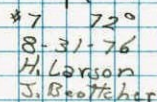 #7 72°
8-31-76
H. Larson
J. Beottcher